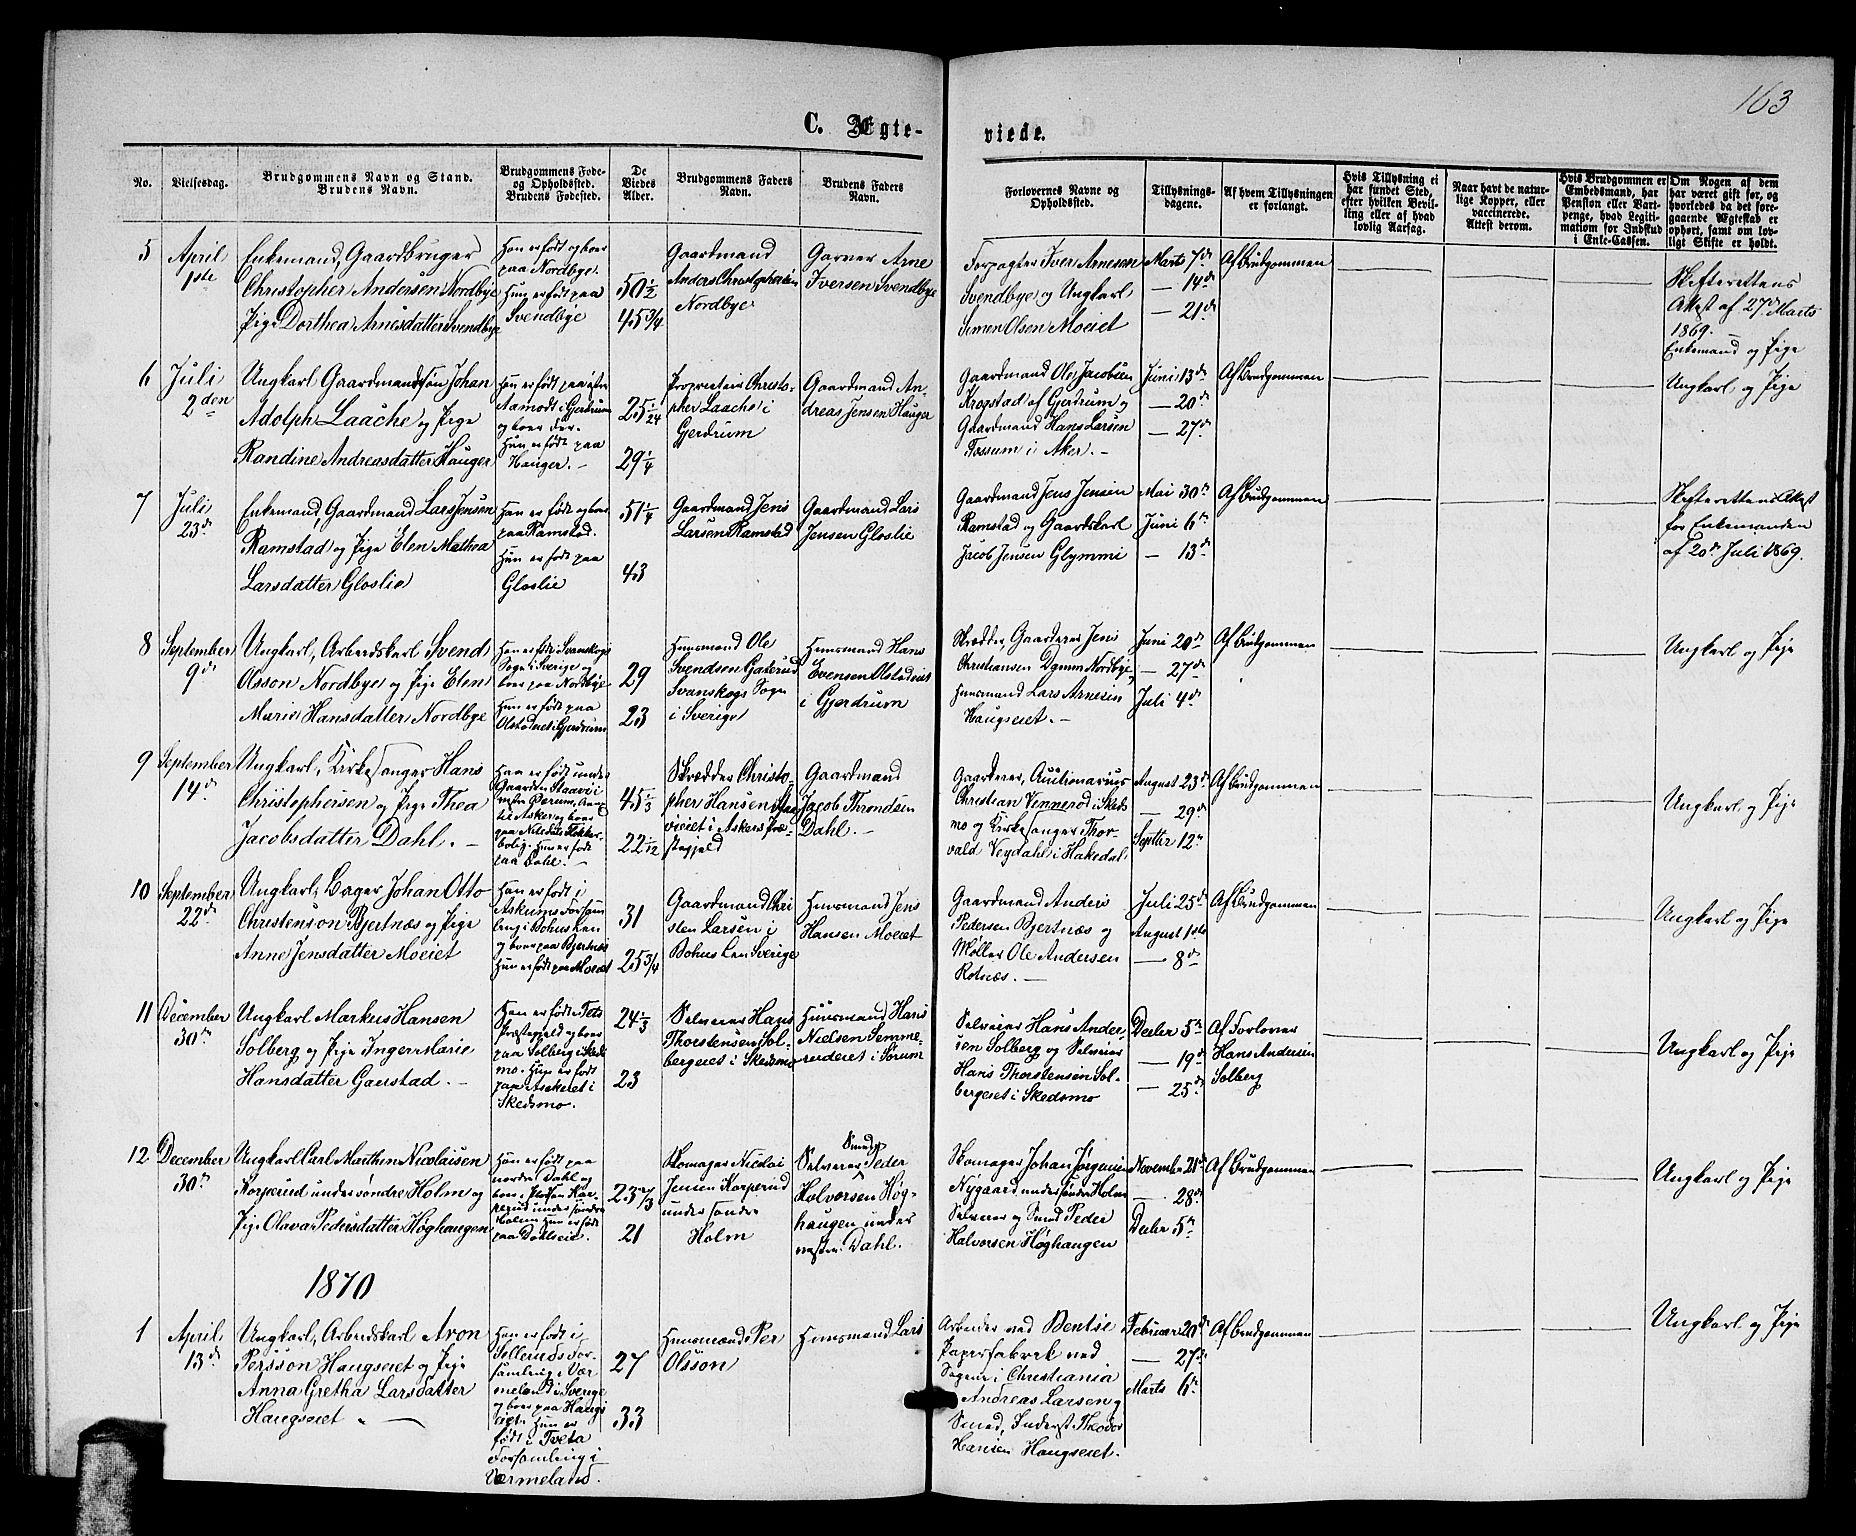 163
C. Ægte-
viede.
No.
Vielsesdag.
Brudgommens Navn og Stand.
Brudens Navn.
Brudgommens Føde-
og Opholdsted.
Brudens Fødested.
De
Viedes
Alder.
Brudgommens Faders
Navn.
Brudens Faders
Navn.
Forlovernes Navne og
Opholdsted.
Tillysnings-
dagene.
Af hvem Tillysningen
er forlangt.
Hvis Tillysning ei
har fundet Sted,
efter hvilken Bevil-
ling eller af hvad
lovlig Aarsag.
Naar havt de natur-
lige Kopper, eller
vaccinerede.
Attest derom.
Hvis Brudgommen er
Embedsmand, har
Pension eller Vart-
penge, hvad Legiti-
mation for Indskud
i Enke-Cassen.
Om Nogen af dem
har været gift før, og
hvorledes da det fore-
gaaende Ægteskab er
ophørt, samt om lov-
ligt Skifte er holdt.
5
April
1ste
Enkemand, Gaardbruger
Christopher Andersen Nordbye
Pige Dorthea Arnesdatter Svendbye
Han er født og boer
paa Nordbye.
Hun er født paa
Svendbye
50 1/2
45 3/4
Gaardmand
Anders Christophersen
Nordbye
Garver Arne
Iversen Svendbye
Forpagter Iver Arnesen
Svendbye og Ungkarl
Simen Olsen Moeiet
Marts 7de
— 14de
— 21de
Af Brudgommen
Skifterettens
Attest af 27de Marts
1869.
Enkemand og Pige
6
Juli
2den
Ungkarl Gaardmandssøn Johan
Adolph Laache og Pige
Randine Andreasdatter Hauger
Han er født paa
Aamodt i Gjerdrum
og boer der.
Hun er født paa
Hauger. —
25 1/24
29 1/4
Proprietair Christo-
pher Laache i
Gjerdrum
Gaardmand An-
dreas Jensen Hauger
Gaardmand Ole Jacobsen
Krogstad af Gjerdrum og
Gaardmand Hans Larsen
Fossum i Aker. —
Juni 13de
— 20de
— 27de
Af Brudgommen
Ungkarl og Pige
7
Juli
23de
Enkemand, Gaardmand Lars Jensen
Ramstad og Pige Elen Mathea
Larsdatter Gloslie
Han er født og boer
paa Ramstad.
Hun er født paa
Gloslie
51 1/4
43
Gaardmand Jens
Larsen Ramstad
Gaardmand Lars
Jensen Gloslie
Gaardmand Jens Jensen
Ramstad og Gaardskarl
Jacob Jensen Glymmi
Mai 30te
Juni 6te
— 13de
Af Brudgommen
Skifterettens Attest
for Enkemanden
af 20de Juli 1869.
8
September
9de
Ungkarl, Arbeidskarl Svend
Olsson Nordbye og Pige Elen
Marie Hansdatter Nordbye
Han er født i Svanskogs
Sogn i Sverige og
boer paa Nordbye
Hun er født paa
Olstadeiet i Gjerdrum
29
23
Huusmand Ole
Svendsen Gaterud
Svanskogs Sogn
i Sverige
Huusmand Hans
Evensen Olstadeiet
i Gjerdrum
Skrædder, Gaardeier Jens
Christiansen Dynn Nordbye,
Huusmand Lars Arnesen
Haugseiet. —
Juni 20de
— 27de
Juli 4de
Af Brudgommen
Ungkarl og Pige
9
September
14de
Ungkarl, Kirkesanger Hans
Christophersen og Pige Thea
Jacobsdatter Dahl. —
Han er født under
Gaarden Staavi i
Asker og boer
Hun er født
paa Dahl. —
45 1/3
22 1/12
Skrædder Christo-
pher Hansen
i Askers Præ-
stegjeld
Gaardmand
Jacob Throndsen
Dahl. —
Gaardeier, Auctionarius
Christian Vemmerød i Skeds
mo og Kirkesanger Thor-
vald Veydahl i Hakedal
August 23de
— 29de
Septbr 12te
Af Brudgommen
Ungkarl og Pige
10
September
22de
Ungkarl, Bager Johan Otto
Christenson Bjertnæs og Pige
Anne Jensdatter Moeiet
Han er født i
Askums Forsam
ling i Bohus Len
og boer paa Bjertnæs
Hun er født paa Moeiet
31
25 3/4
Gaardmand Chri
sten Larsen i
Bohus Len Sverige
Huusmand Jens
Hansen Moeiet
Gaardmand Anders
Pedersen Bjertnæs og
Møller Ole Andersen
Rotnæs. —
Juli 25de
August 1ste
— 8de
Af Brudgommen
Ungkarl og Pige
11
December
30te
Ungkarl Markus Hansen
Solberg og Pige Inger Marie
Hansdatter Gaerstad. —
Han er født i Fets
Præstegjeld og boer
paa Solberg i Skeds
mo. Hun er født
paa Askeiet i
Skedsmo.
24 1/3
23
Selveier Hans
Thorstensen Sol-
bergeiet i Skedsmo
Huusmand Hans
Nielsen Semme-
rudeiet i Sørum
Selveier Hans Ander-
sen Solberg og Selveier
Hans Thorstensen Sol-
bergeiet i Skedsmo
Decbr 5te
— 19de
— 25de
Af Forlover
Hans Andersen
Solberg
Ungkarl og Pige
12
December
30te
Ungkarl Carl Marthin Nicolaisen
Korperud under søndre Holm og
Pige Olava Pedersdatter Høghaugen
Han er født paa
nordre Dahl og
boer i Pladsen Kor-
perud under søndre
Holm Hun er født
paa Dahleiet.
23 2/3
21
Skomager Nicolai
Jensen Korperud
under søndre
Holm
Selveier Smed Peder
Halvorsen Høg-
haugen under
nestre Dahl.
Skomager Johan Jørgensen
Nygaard under søndre Holm
Selveier og Smed Peder
Halvorsen Høghaugen
November 21de
— 28de
Decbr 5te
Af Brudgommen
Ungkarl og Pige
1870
1
April
13de
Ungkarl, Arbeidskarl Aron
Persson Haugseiet og Pige
Anna Gretha Larsdatter
Haugseiet
Han er født i
Sillerud's For-
samling i Vær
meland i Sverige
og boer paa Haugs
eiet. Hun er
født i Tveta
Forsamling i
Værmeland.
27
33
Huusmand Per
Olsson
Huusmand Lars
Arbeider ved Bentse
Papirfabrik ved
Sagene i Christiania
Andreas Larsen og
Smed, Inderst Theodor
Hansen Haugseiet.
Februar 20de
— 27de
Marts 6te
Af Brudgommen
Ungkarl og Pige